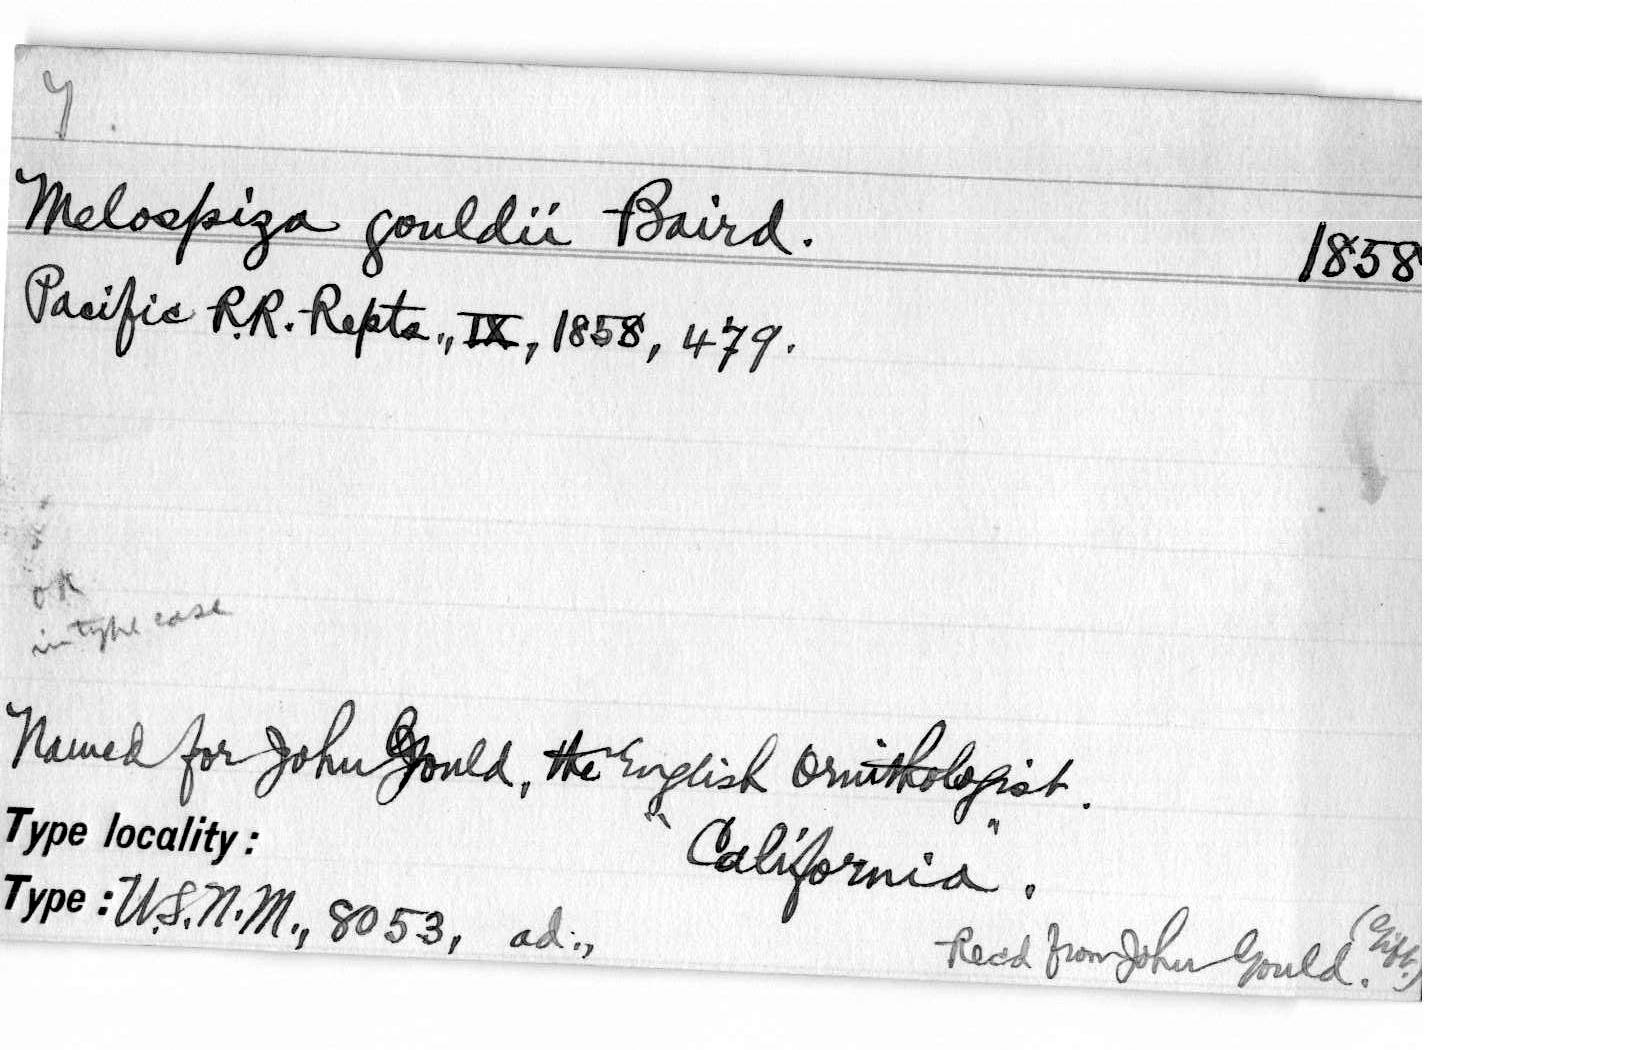 Y.
Melospiza gouldii Baird.
1858
Pacific R.R. Repts., IX, 1858, 479.
OK
in type case
Named for John Gould, the English Ornithologist.
Type locality: "California".
Type: U.S.N.M., 8053, ad.,
Recd from John Gould. (Gift.)